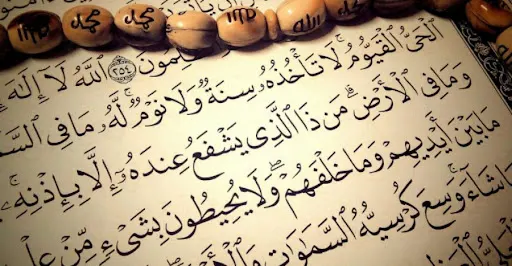 محمد محمد الله
۝٢٥٤ ٱللَّهُ لَآ إِلَـٰهَ
ٱلْحَىُّ ٱلْقَيُّومُ ۚ لَا تَأْخُذُهُۥ سِنَةٌ وَلَا نَوْمٌ ۚ لَّهُۥ مَا فِى ٱلسَّمَـ
وَمَا فِى ٱلْأَرْضِ ۗ مَن ذَا ٱلَّذِى يَشْفَعُ عِندَهُۥٓ إِلَّا بِإِذْنِهِۦ ۚ
مَا بَيْنَ أَيْدِيهِمْ وَمَا خَلْفَهُمْ ۖ وَلَا يُحِيطُونَ بِشَىْءٍ مِّنْ عِلْ
شَآءَ ۚ وَسِعَ كُرْسِيُّهُ ٱلسَّمَـٰوَٰتِ وَٱلْأَرْ